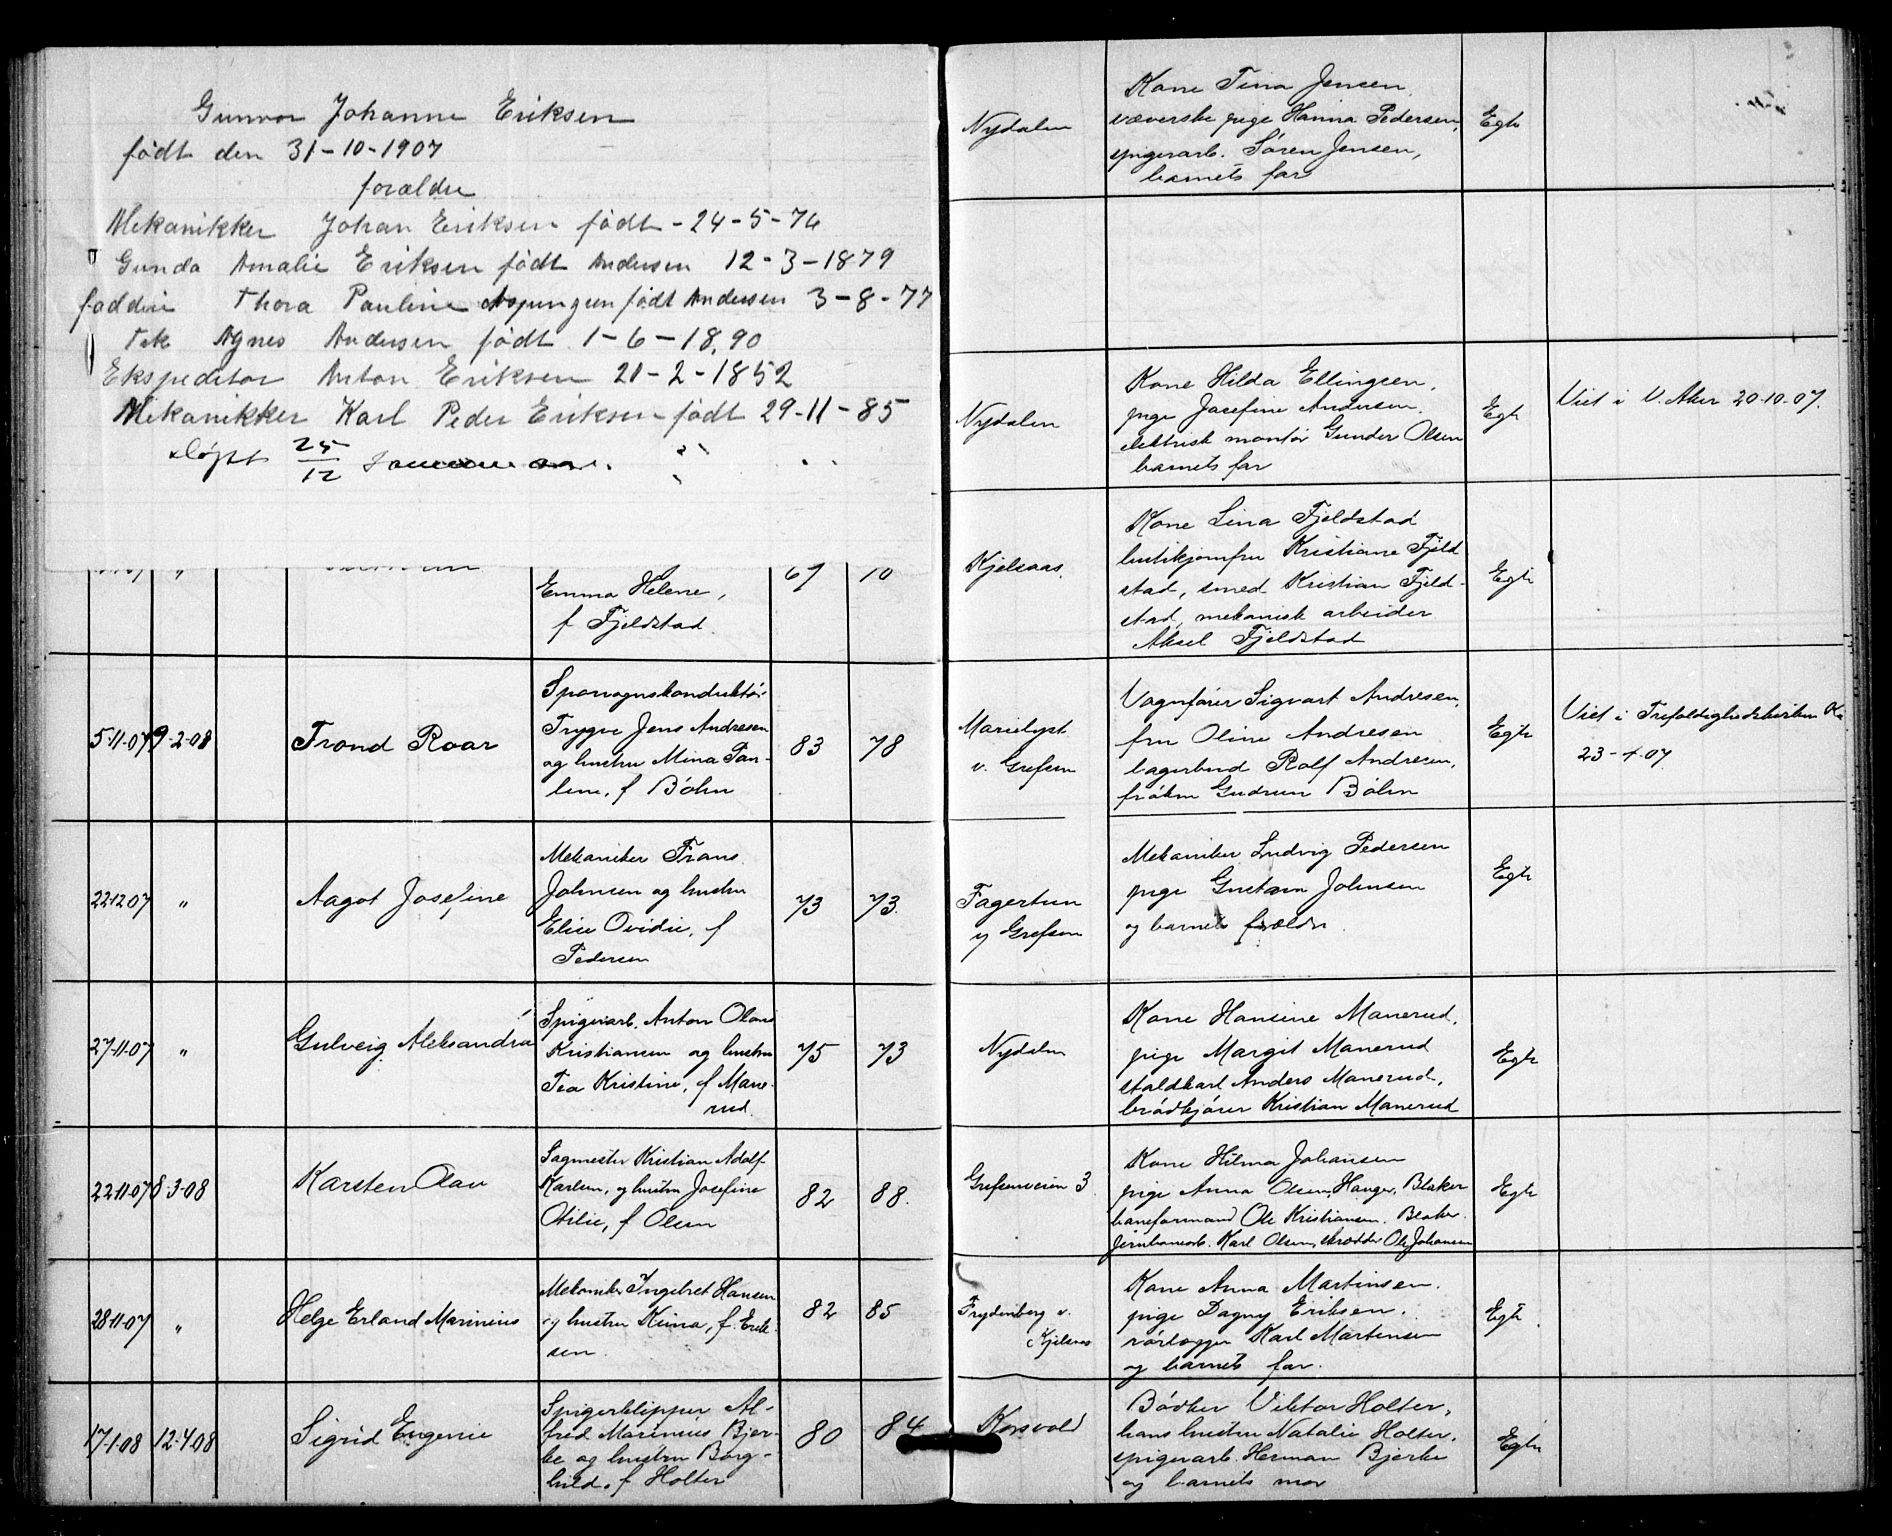 Gunvor Johanne Eriksen
født den 31-10-1907
forældre
Mekanikker Johan Eriksen født - 24-5-76
Gunda Amalie Eriksen født Andersen 12-3-1879
faddere Thora Pauline født Andersen 3-8-77
Agnes Andersen født 1-6-18,90
Ekspeditør Anton Eriksen 21-2-1852
Mekanikker Karl Peder Eriksen født 29-11-85
døpt 25/12
Emma Helene,
f Fjeldstad.
67
10
5-11-07
9-2-08
Trond Roar
Sporvognskonduktør
Trygve Jens Andresen
og hustru Mina Pau-
line, f Bøhn
83
78
22-12-07
"
Aagot Josefine
Mekaniker Frans
Johnsen og hustru
Elise Ovidie, f
Pedersen
73
73.
27-11-07
"
Gulveig Aleksandra
Spigerarb. Anton Olaus
Kristiansen og hustru
Tea Kristine, f Mane-
rud.
75
73
22-11-07
8-3-08
Karsten Olav
Sagmester Kristian Adolf
Karlsen, og hustru Josefine
Otilie, f Olsen
82
88.
28-11-07
"
Helge Erland Marinius
Mekaniker Ingebret Hansen
og hustru Kima, f. Erik-
sen.
82
85
17-1-08
12-4-08
Sigrid Eugenie
Spigerklipper Al-
fred Marinius Bjer-
ke og hustru Borg-
hild, f Holter
80
84
Nydalen
Kone Tina Jensen,
væverske pige Hanna Pedersen,
spigerarb. Søren Jensen,
barnets far
Egte
Nydalen
Kone Hilda Ellingsen,
pige Josefine Andersen,
elektrisk montør Gunder Olsen
barnets far
Egte
Viet i V. Aker 20-10-07.
Kjelsaas,
Kone Lina Fjeldstad
butikjomfru Kristiane Fjeld
stad, smed Kristian Fjeld-
stad, mekanisk arbeider
Aksel Fjeldstad
Egte
Marielyst
v. Grefsen
Vognfører Sigvart Andresen,
fru Oline Andresen
lagerbud Rolf Andresen,
frøken Gudrun Bøhn
Egte
Viet i Trefoldighedskirken Kr
23-4-07.
Fagertun
v Grefsen
Mekaniker Ludvig Pedersen
pige Gustava Johnsen
og barnets forældre.
Egte
Nydalen
Kone Hansine Manerud,
pige Margit Manerud
staldkarl Anders Manerud,
brødkjører Kristian Manerud
Egte
Grefsenveien 3.
Kone Hilma Johansen
pige Anna Olsen, Hauger, Blaker
baneformand Ole Kristiansen. Blaker.
Jernbanearb. Karl Olsen, skrædder Ole Johansen
Egte
Frydenberg v.
Kjelsaas
Kone Anna Martinsen.
pige Dagny Eriksen.
rørlægger Karl Martinsen
og barnets far.
Egte
Korsvold
Bødker Viktor Holter,
hans hustru Natalie Holter,
spigerarb. Herman Bjerke
og barnets mor
Egte